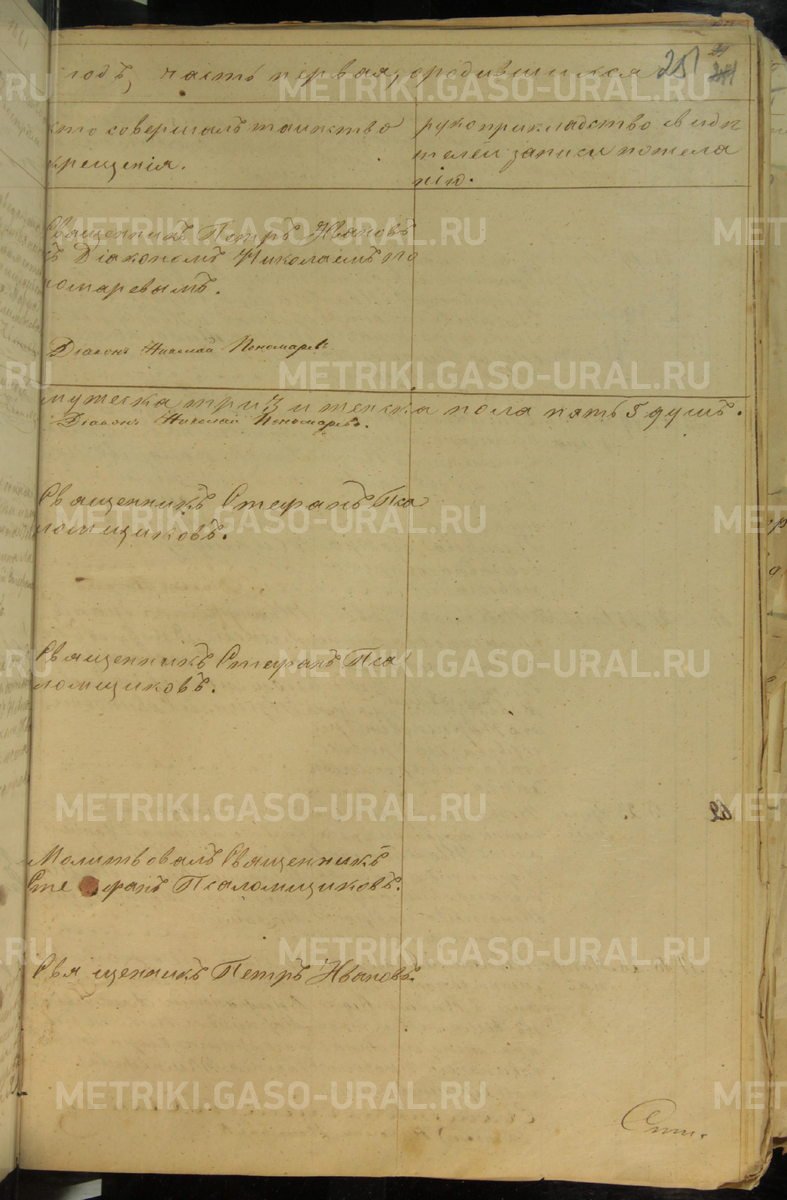 годъ, часть первая, ородившихся 251
кто совершалъ таинство
крещенія.
рукоприкладство свидѣ
телей записи пожела
нію.
Священникъ Петръ Ивановъ
съ Діакономъ Николаемъ По
номаревымъ.
Діаконъ Николай Пономаревъ
мужеска три 3 и женска пола пять 5 душъ.
Діаконъ Николай Пономаревъ.
Священникъ Стефанъ Пса
ломщиковъ.
Священникъ Стефанъ Пса
ломщиковъ.
Молитвовалъ Священникъ
Стефанъ Псаломщиковъ.
Священникъ Петръ Ивановъ.
METRIKI.GASO-URAL.RU